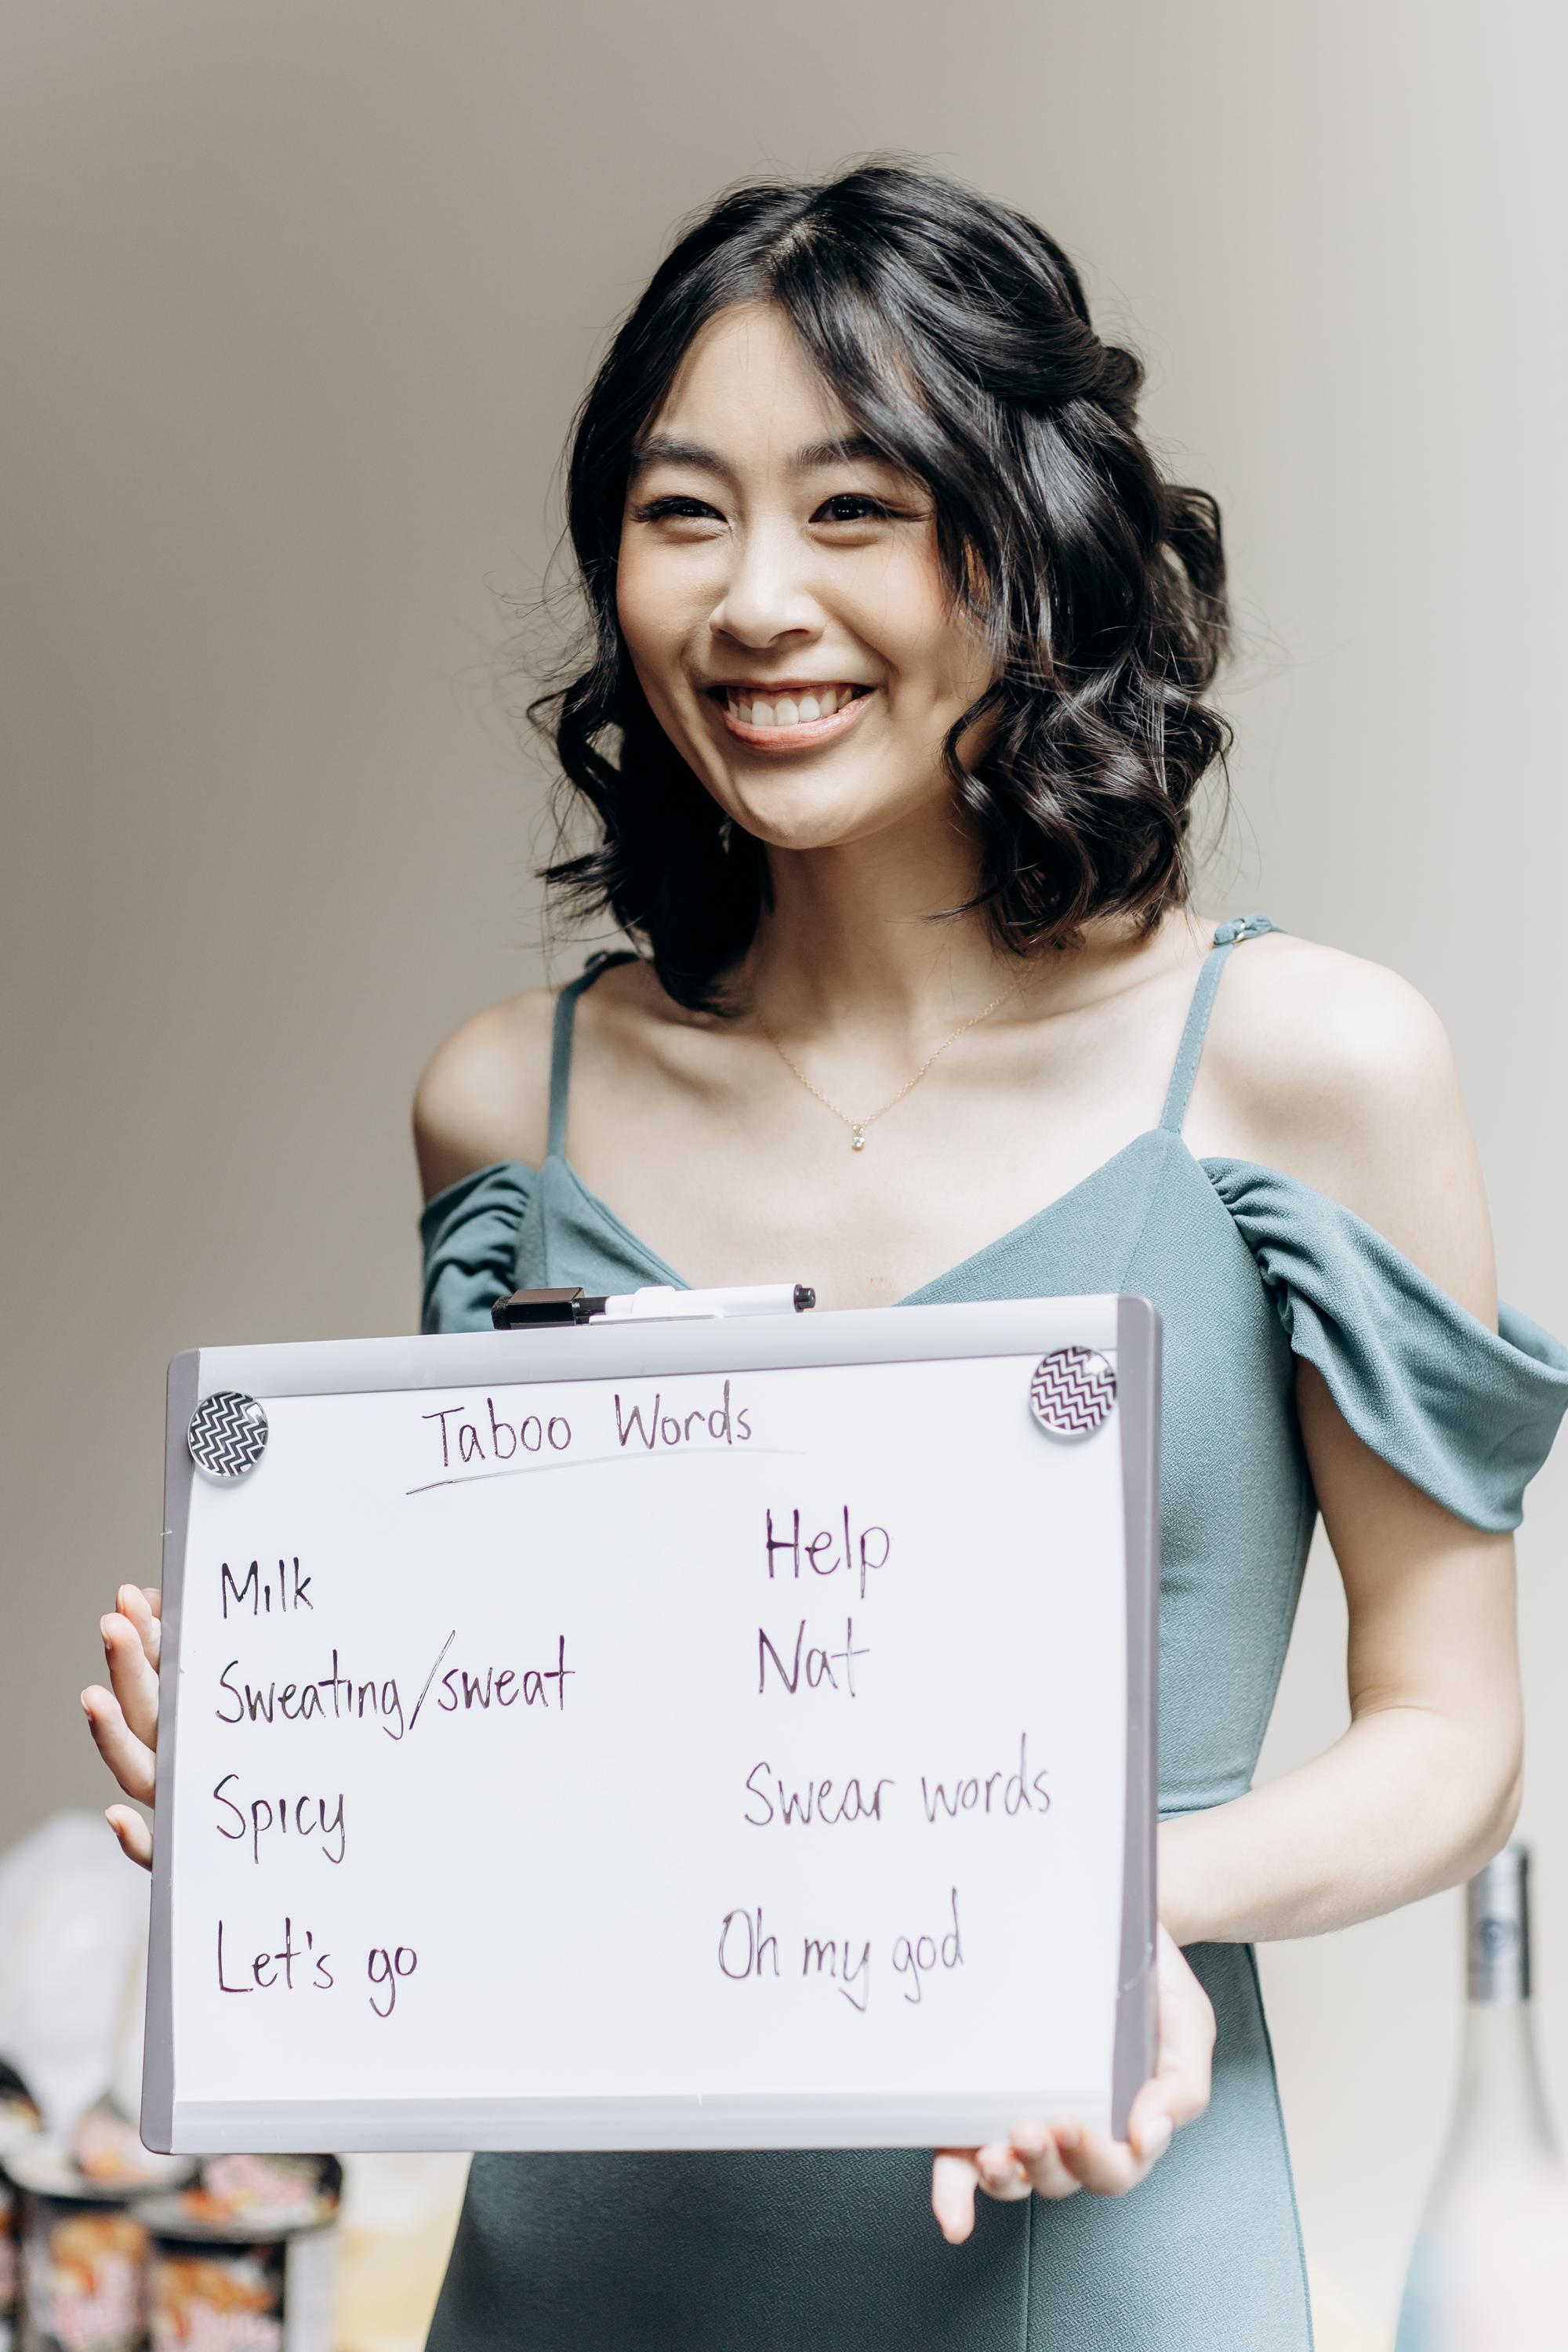 Taboo Words
Milk
Sweating/sweat
Spicy
Let's go
Help
Nat
Swear words
Oh my god